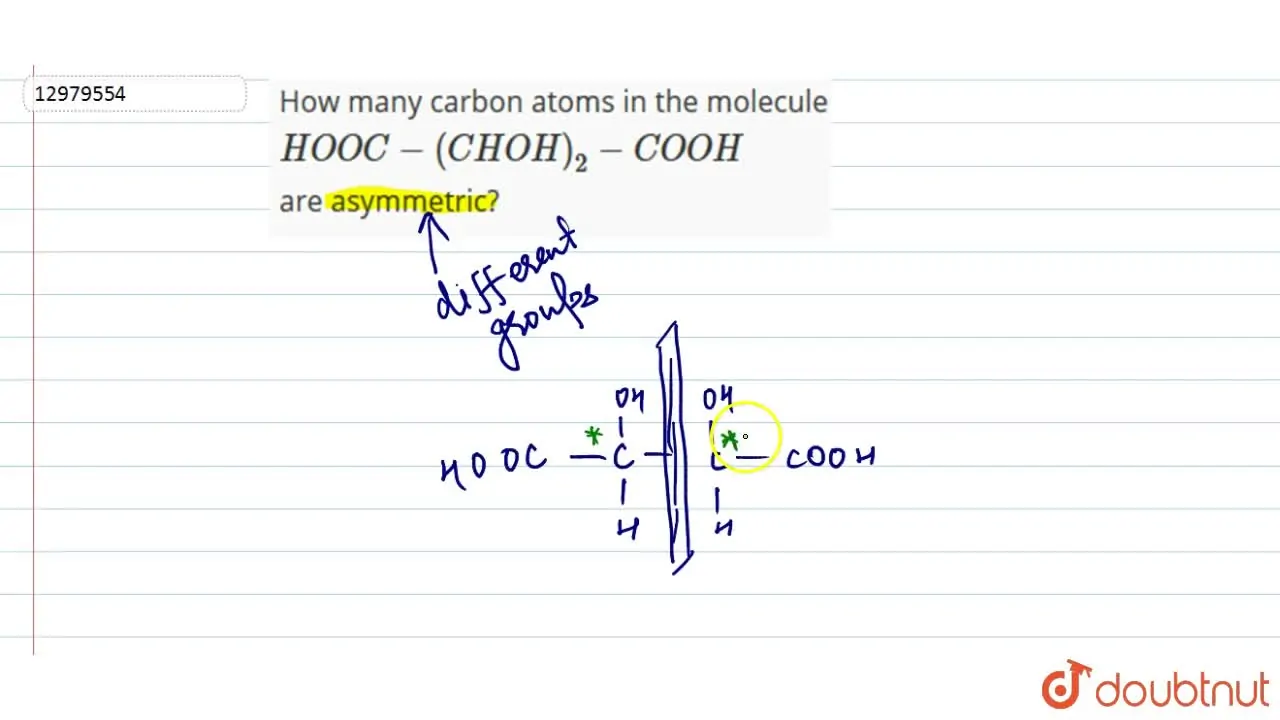 12979554
How many carbon atoms in the molecule
HOOC − (CHOH)₂ − COOH
are asymmetric?
different
groups
OH OH
* *
HOOC — C — C — COOH
H H
doubtnut